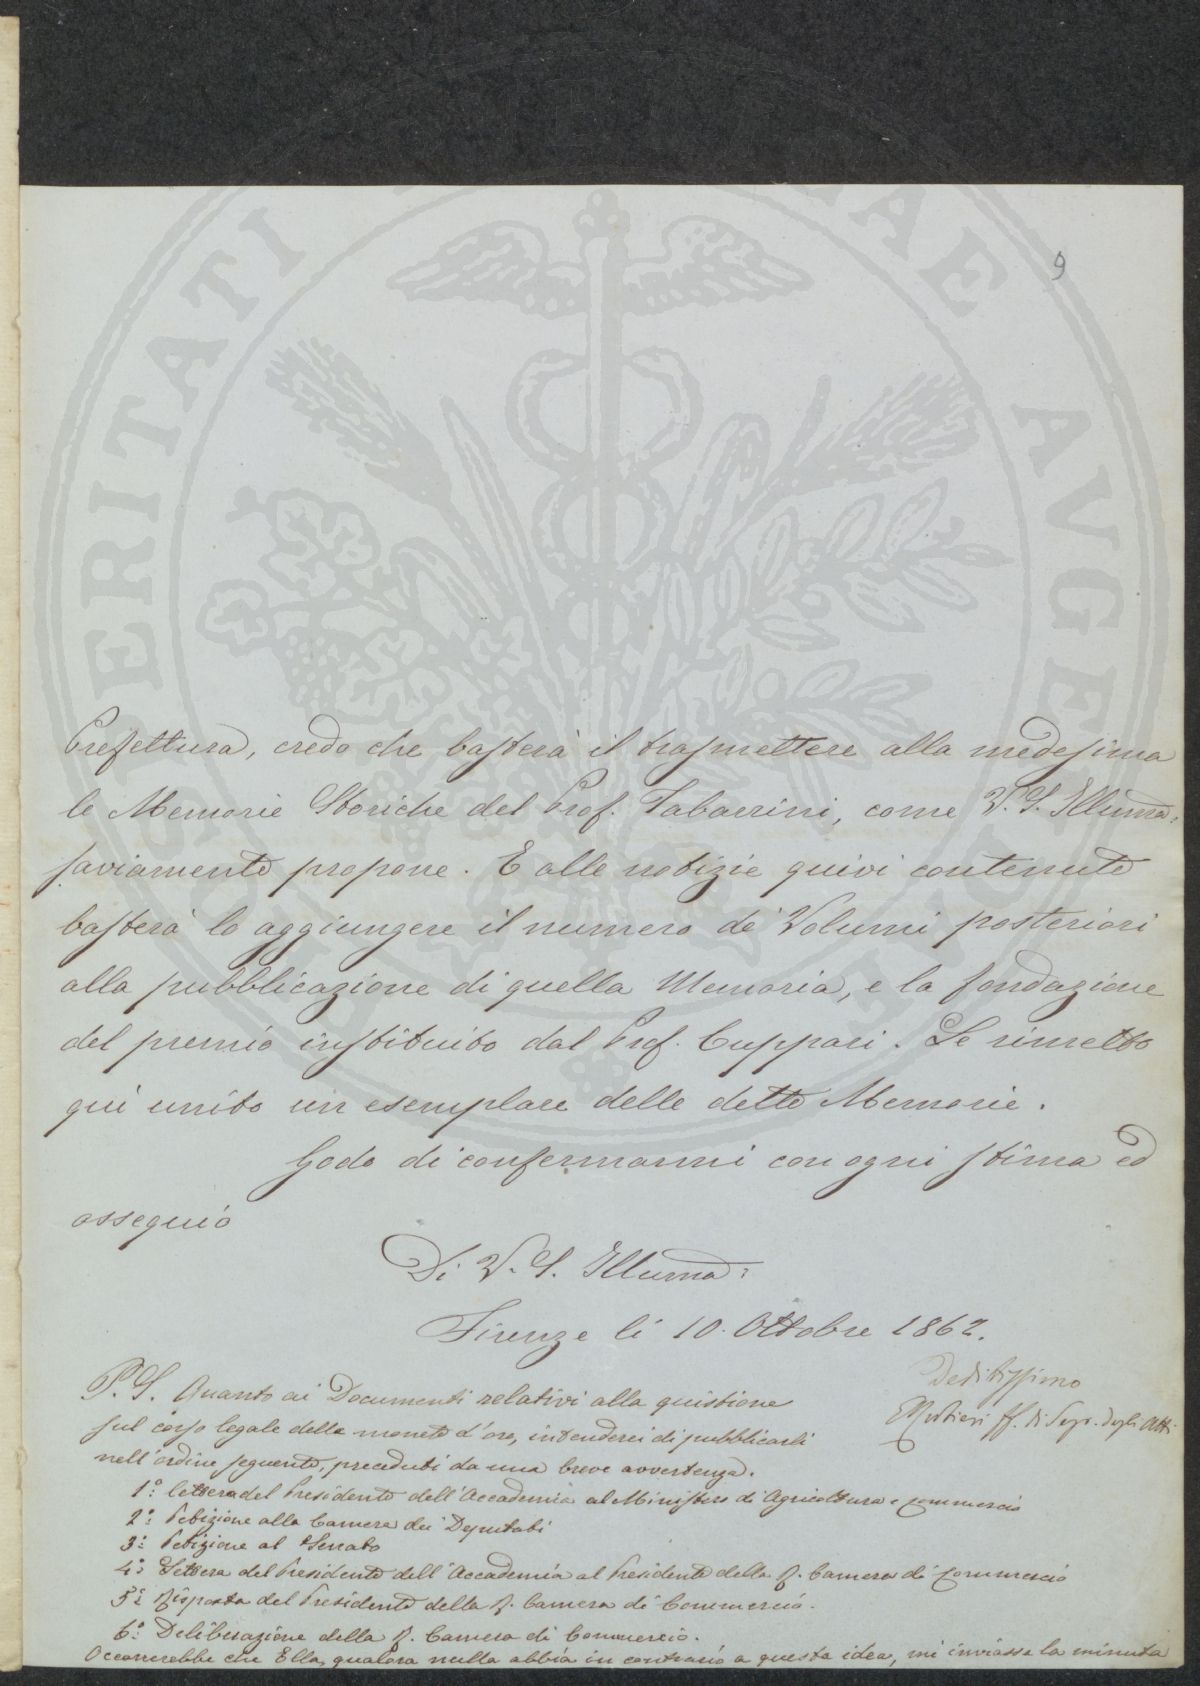 9
Prefettura, credo che basterà il trasmettere alla medesima
le Memorie Storiche del Prof. Tabarrini, come V. S. Illuma:
saviamente propone. E alle notizie quivi contenute
basterà lo aggiungere il numero de' Volumi posteriori
alla pubblicazione di quella Memoria, e la fondazione
del premio instituito dal Prof. Cuppari. Le rimetto
qui unito un esemplare delle dette Memorie.
Godo di confermarmi con ogni stima ed
ossequio
Di V. S. Illuma:
Firenze li 10. Ottobre 1862.
Devotissimo
ff. di Segr. degli Atti
P. S. Quanto ai Documenti relativi alla quistione
sul corso legale delle monete d'oro, intenderei di pubblicarli
nell'ordine seguente, preceduti da una breve avvertenza.
1º: lettera del Presidente dell'Accademia al Ministero di Agricoltura e commercio
2º: Petizione alla Camera dei Deputati
3º: Petizione al Senato
4º: Lettera del Presidente dell'Accademia al Presidente della R. Camera di Commercio
5º: Risposta del Presidente della R. Camera di Commercio.
6º: Deliberazione della R. Camera di Commercio.
Occorrerebbe che Ella, qualora nulla abbia in contrario a questa idea, mi inviasse la minuta